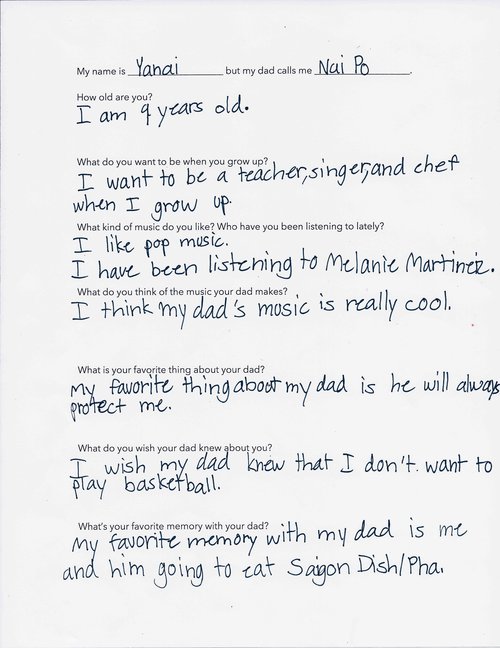 My name is Yanai but my dad calls me Nai Po.
How old are you?
I am 9 years old.
What do you want to be when you grow up?
I want to be a teacher, singer, and chef
when I grow up.
What kind of music do you like? Who have you been listening to lately?
I like pop music.
I have been listening to Melanie Martinez.
What do you think of the music your dad makes?
I think my dad's music is really cool.
What is your favorite thing about your dad?
My favorite thing about my dad is he will always
protect me.
What do you wish your dad knew about you?
I wish my dad knew that I don't want to
play basketball.
What's your favorite memory with your dad?
My favorite memory with my dad is me
and him going to eat Saigon Dish/Pha.